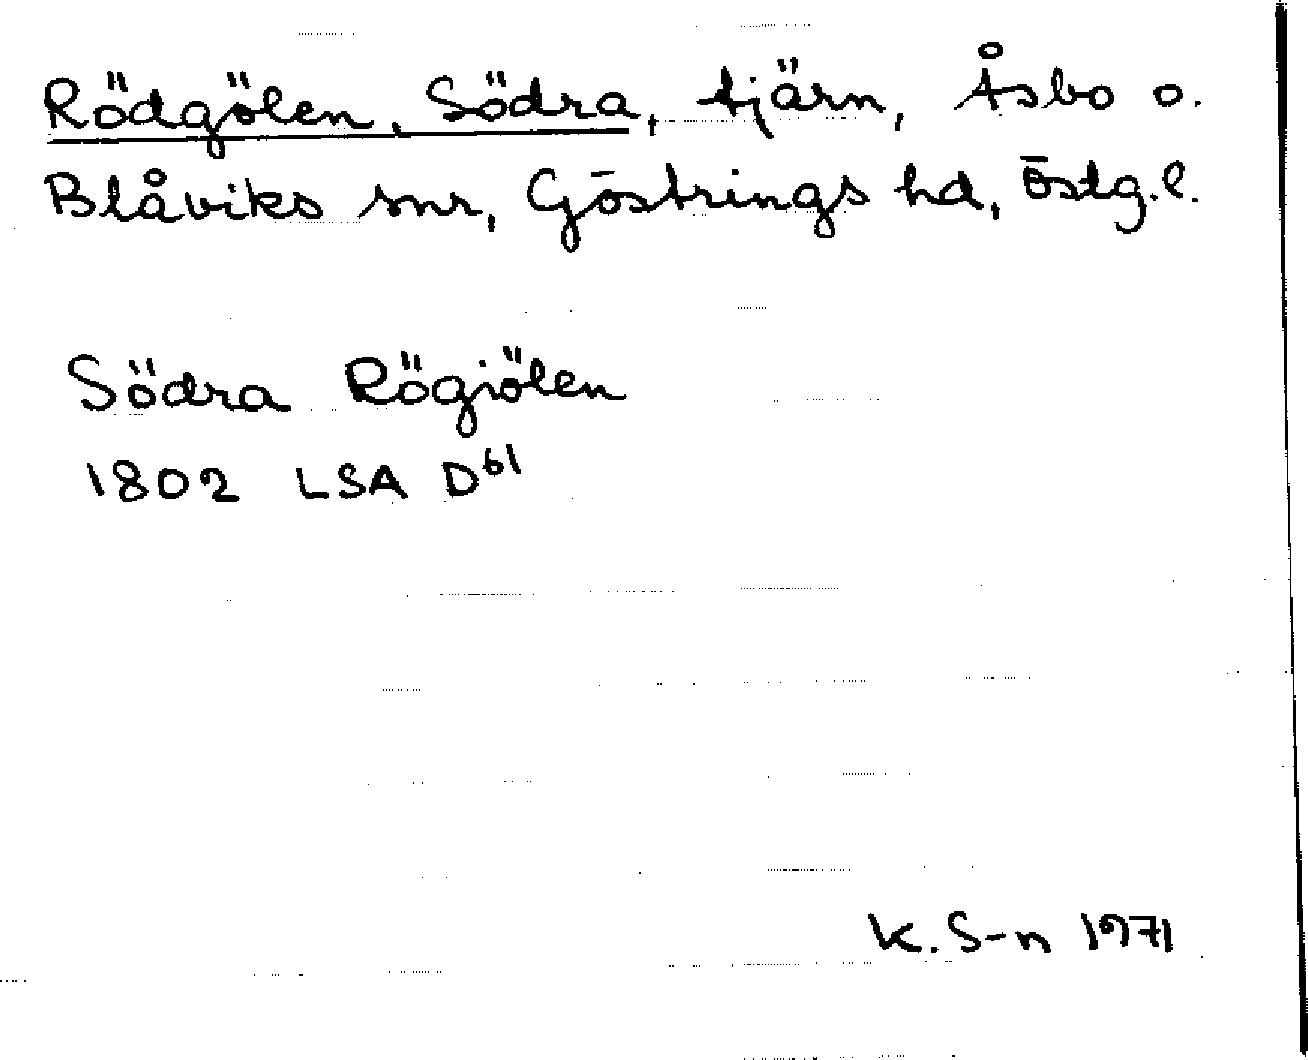 Rödgölen, Södra, tjärn, Åsbo o.
Blåviks snr, Göstrings hd, Östg.l.
Södra Rögiölen
1802 LSA D⁶¹
K. S-n 1971